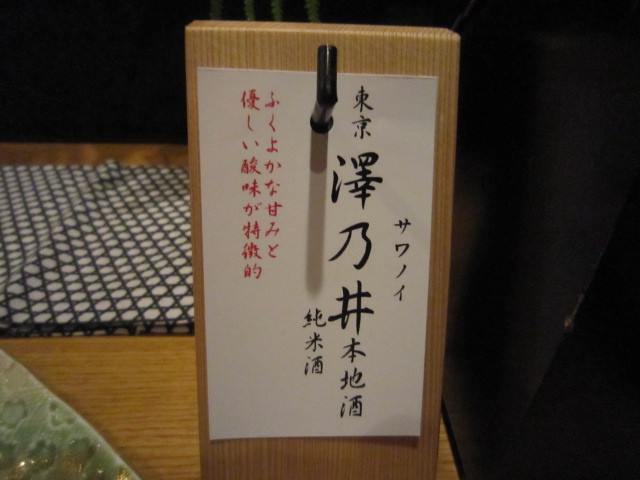 サワノイ
東京
澤乃井本地酒
純米酒
ふくよかな甘みと
優しい酸味が特徴的